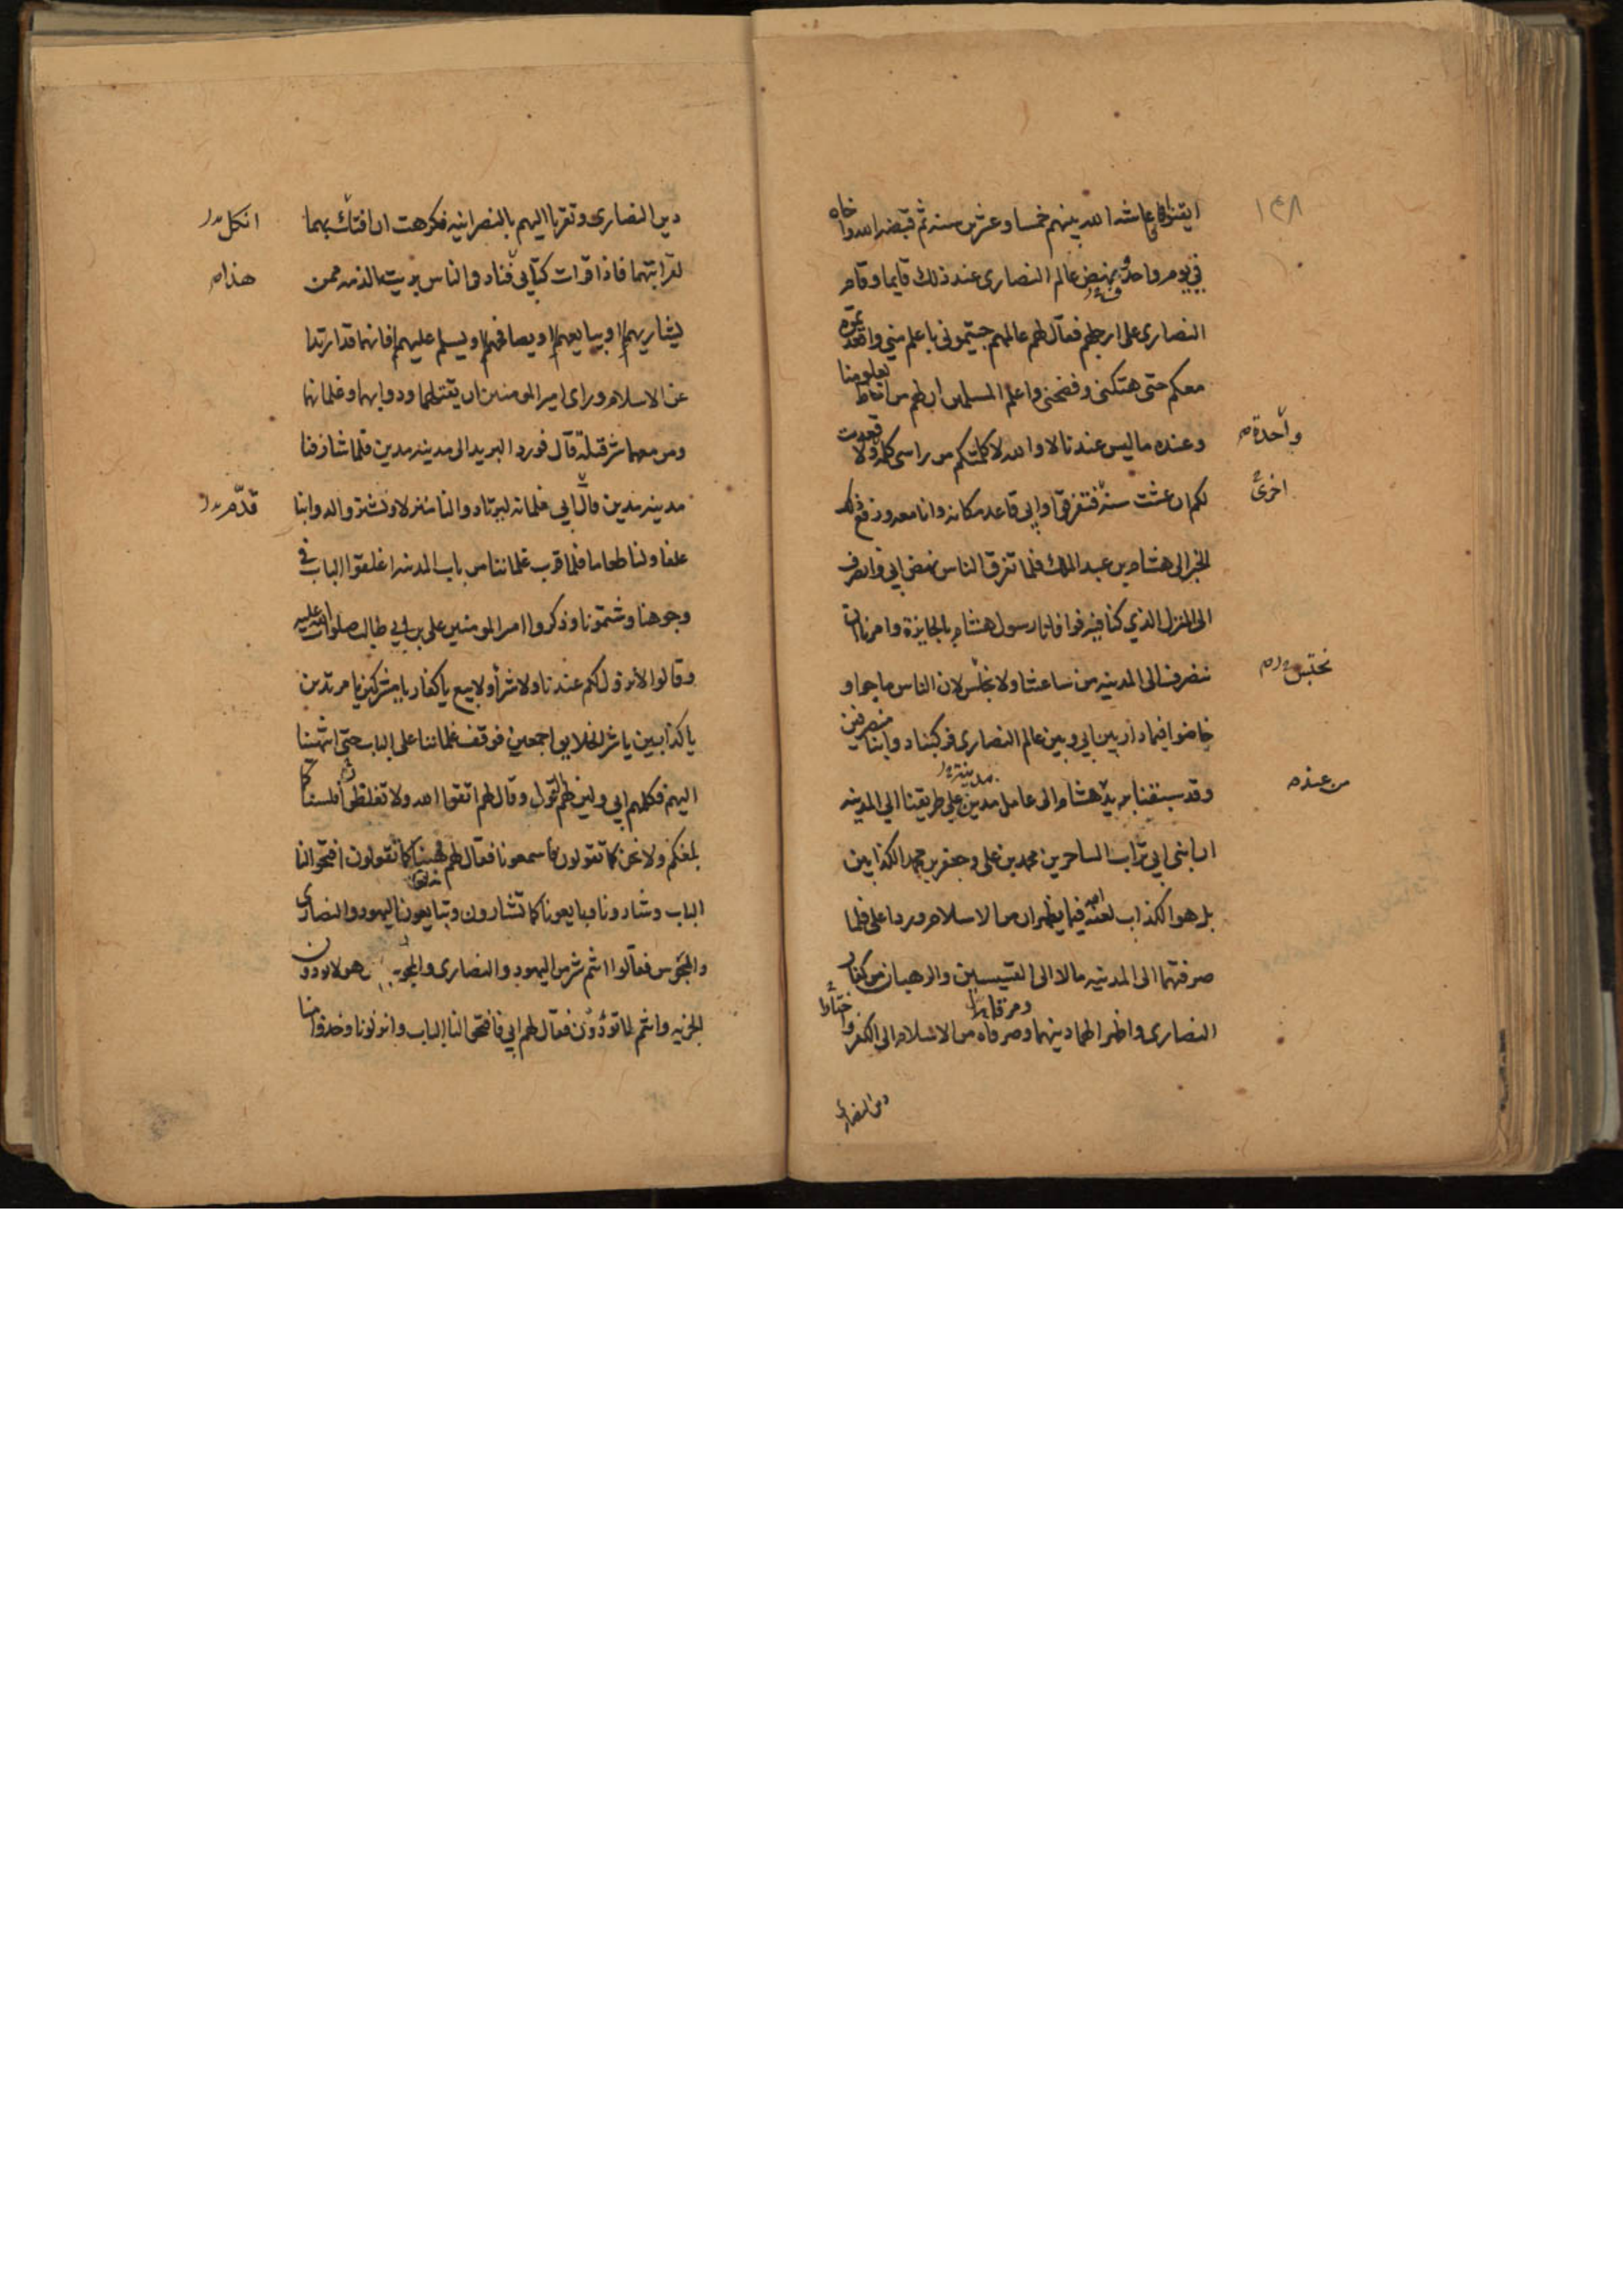 ١٤٨
ايقنوا فعاشه الله بينهم خمسا وعشرين سنه ثم قبضه الله واخاه
في يوم واحد فنهض عالم النصارى عند ذلك قايما وقام
النصارى على ارجلهم فقال لهم عالمهم جيتموني باعلم مني واقعدتموه
معكم حتى هتكني وفضحني واعلم المسلمين ان لهم من احاط بعلومنا
وعنده ما ليس عندنا لا والله لا كلمتكم من راسي كلمة ولا قعدت
واحدة
لكم ان عشت سنة فتفرقوا وابي قاعد مكانه وانا معه ورفع ذلك
اخرى
الخبر الى هشام بن عبد الملك فلما تفرق الناس نهض ابي وانصرف
الى المنزل الذي كنا فيه فوافانا رسول هشام بالجايزة وامرنا ان
ننصرف الى المدينه من ساعتنا ولا نجلس لان الناس ماجوا و
نحتبس
خاضوا فيما دار بين ابي وبين عالم النصارى فركبنا دوابنا منصرفين
وقد سبقنا بريد هشام الى عامل مدين على طريقنا الى المدينه
مدينة
من عنده
ان ابني ابي تراب الساحرين محمد بن علي وجعفر بن محمد الكذابين
بل هو الكذاب لعنه الله فيما يظهران من الاسلام وردا علي فلما
صرفتهما الى المدينه مالا الى القسيسين والرهبان من كفار
النصارى واظهرا لهما دينهما ومرقا من الاسلام الى الكفر
دين النصارى
دين النصارى وتقربا اليهم بالنصرانيه فكرهت ان افتك بهما
انكل
لقرابتهما فاذا قرات كتابي فناد في الناس بريت الذمه ممن
هذا
يشاريهما او يبايعهما او يصافحهما او يسلم عليهما فانهما قد ارتدا
عن الاسلام وراى امير المومنين ان يقتلهما ودوابهما وغلمانهما
ومن معهما شر قتلة قال فورد البريد الى مدينه مدين فلما شارفنا
مدينه مدين قال ابي غلمانه ليرتادوا لنا منزلا ويشتروا لدوابنا
قدم
علفا ولنا طعاما فلما قرب غلماننا من باب المدينه اغلقوا الباب في
وجوهنا وشتمونا وذكروا امير المومنين علي بن ابي طالب صلوات الله عليه
وقالوا لا نزول لكم عندنا ولا شرأ ولا بيع يا كفار يا مشركين يا مرتدين
يا كذابين يا شر الخلايق اجمعين فوقف غلماننا على الباب حتى انتهينا
اليهم فكلمهم ابي ولين لهم القول وقال لهم اتقوا الله ولا تغلظوا فلسنا كما
بلغكم ولا نحن كما تقولون فاسمعونا فقال لهم فهبنا كما تقولون افتحوا لنا
الباب وشارونا وبايعونا كما تشارون وتبايعون اليهود والنصارى
والمجوس فقالوا انتم شر من اليهود والنصارى والمجوس هولا يودون
الجزيه وانتم لا تؤدون فقال لهم ابي فافتحوا لنا الباب وانزلونا وخذوا منا